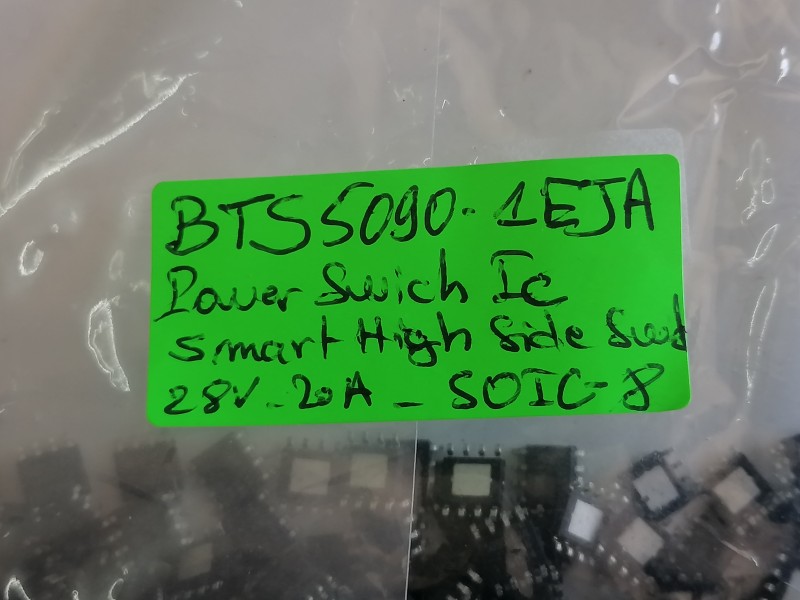 BTS5090-1EJA
Power Swich Ic
Smart High Side Swt
28V-20A - SOIC-8